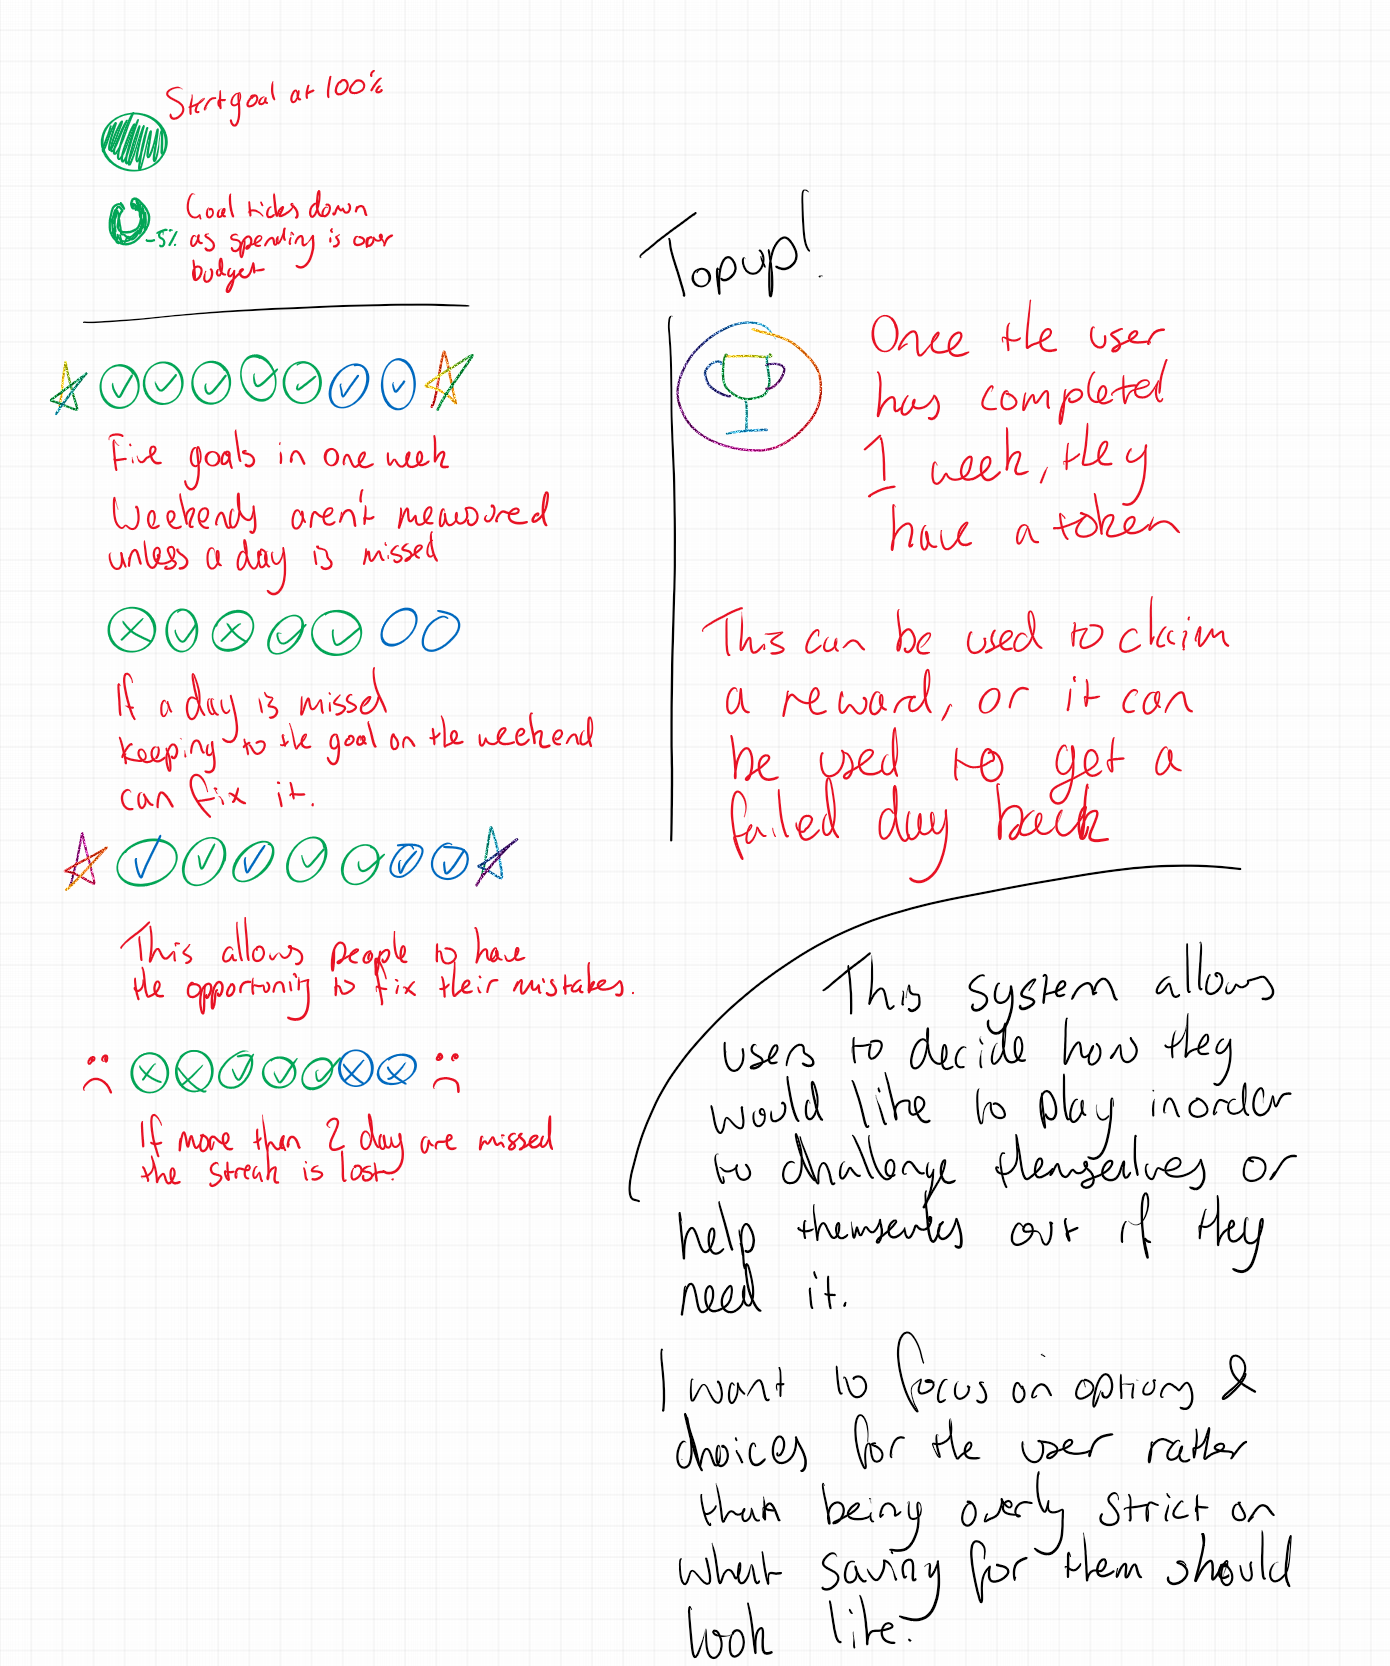 Start goal at 100%
Goal ticks down
-5% as spending is over
budget
Five goals in one week
Weekends aren't measured
unless a day is missed
If a day is missed
keeping to the goal on the weekend
can fix it.
This allows people to have
the opportunity to fix their mistakes.
If more than 2 day are missed
the streak is lost.
Topup!
Once the user
has completed
1 week, they
have a token
This can be used to claim
a reward, or it can
be used to get a
failed day back
This system allows
users to decide how they
would like to play inorder
to challenge themselves or
help themselves out if they
need it.
I want to focus on options &
choices for the user rather
than being overly strict on
what saving for them should
look like.